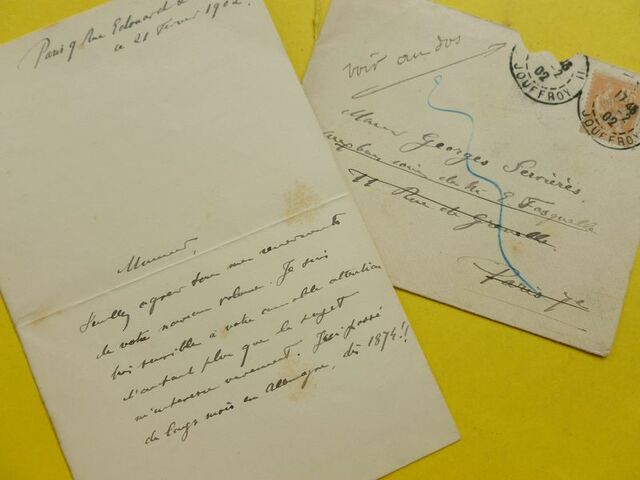 Paris 9 Rue Edouard
ce 21 Février 1902.
Monsieur,
Veuillez agréer tous mes remerciements
de votre nouveau volume. Je suis
très sensible à votre aimable attention
d'autant plus que le sujet
m'intéresse vivement. J'ai passé
de longs mois en Allemagne, dès 1874!!
voir au dos
Monsieur Georges Servières.
aux bons soins de Mr E Fasquelle
11 Rue de Grenelle.
Paris 7e
02
JOUFFROY
17
02
JOUFFROY